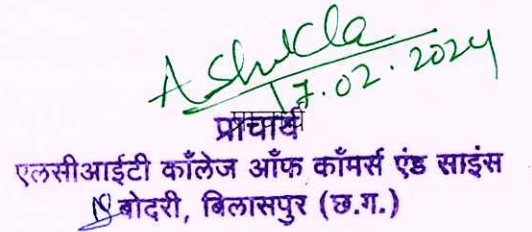 AShukla
17.02.2024
प्राचार्य
एलसीआईटी कॉलेज ऑफ कॉमर्स एंड साइंस
बोदरी, बिलासपुर (छ.ग.)